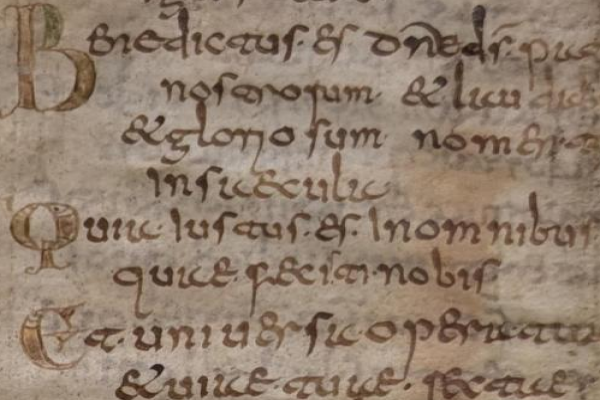 Benedictus · es · dn̄e ds̄ · pa
nostrorum · & lau
& gloriosum nomen
in saecula
Quia · iustus · es · In omnibus
quae · feciti · nobis
Et · uniuersa · opera tua
& uiae · tuae · rectae